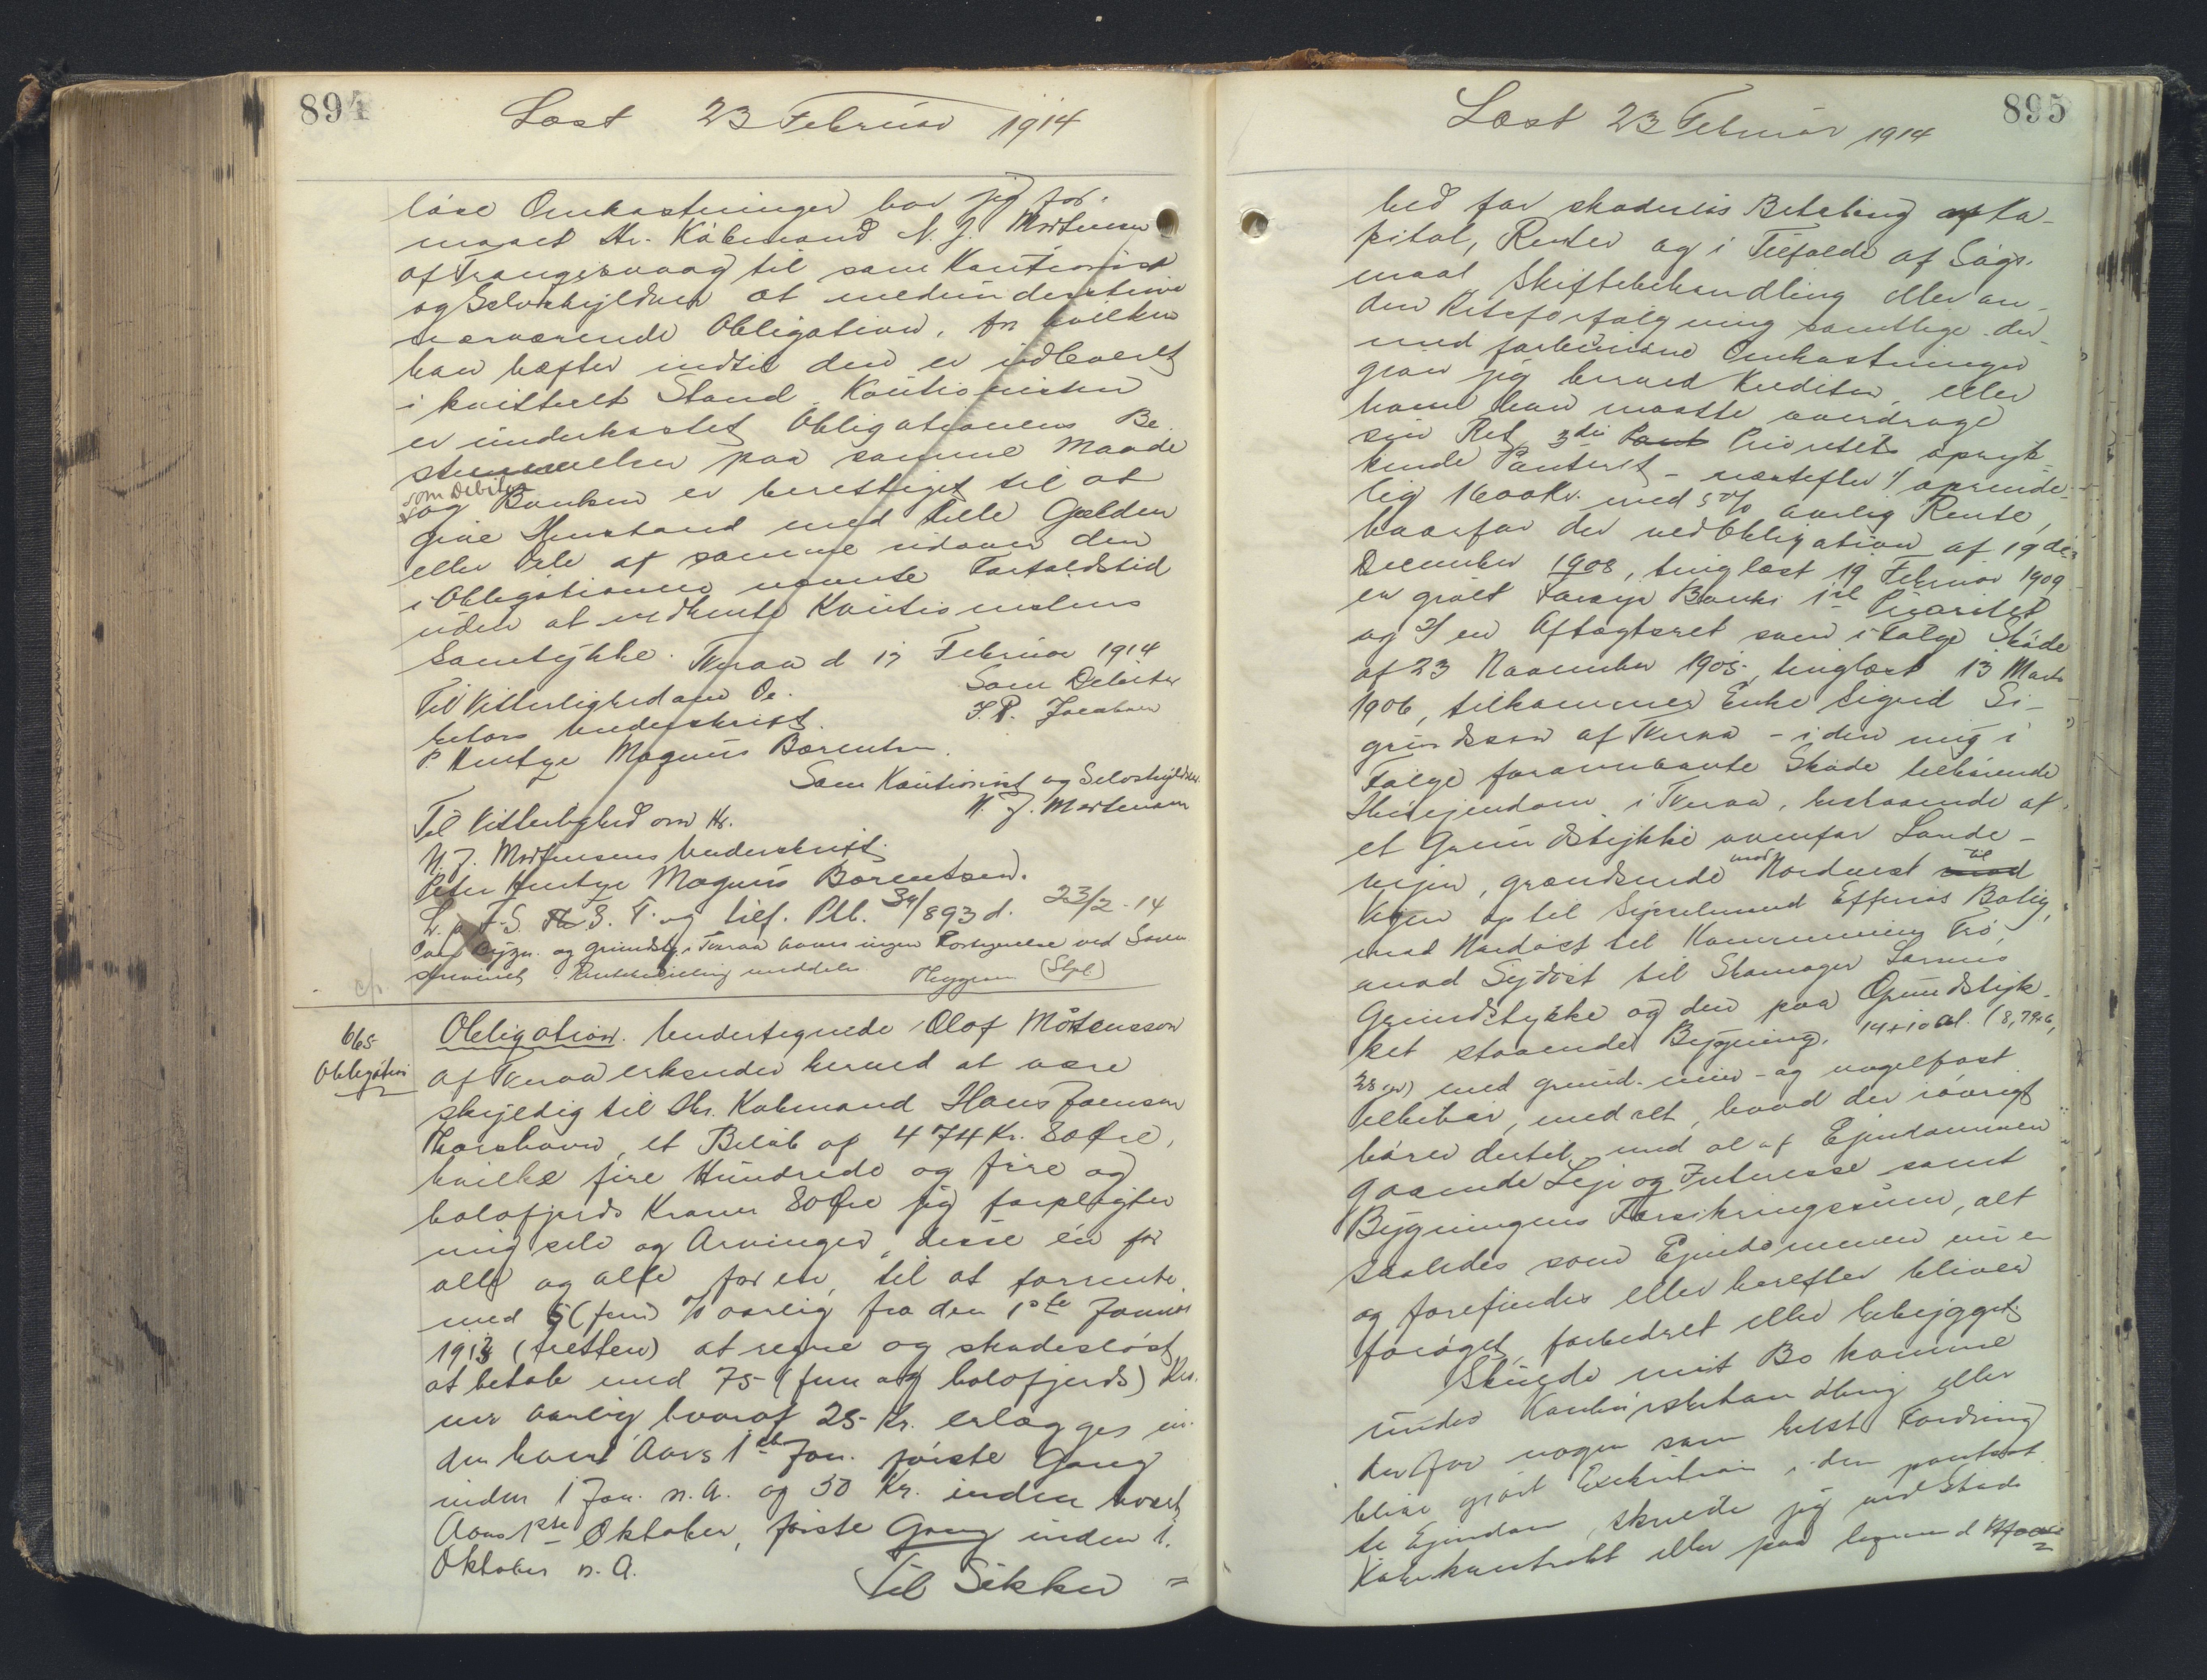 894
Læst 23 Februar 1914
løse Omkostninger har jeg for-
maaet Hr. Købmand N. J. Mortensen
af Trangisvaag til som Kautionist
og Selvskyldner at medunderskrive
nærværende Obligation, for hvilken
han hæfter indtil den er indleveret
i kvitteret Stand. Kautionisten
er underkastet Obligationens Be-
stemmelser paa samme Maade
som Debitor
og Banken er berettiget til at
give Henstand med hele Gælden
eller Dele af samme udover den
i Obligationen nævnte Forfaldstid
uden at indhente Kautionistens
Samtykke. Tveraa d 17 Februar 1914
Til Vitterlighed om De- Som Debitor
bitors Underskrift. J. P. Jacobsen
P. Hentze Magnus Bærentsen.
Som Kautionist og Selvskyldner.
Til Vitterlighed om Hr. N. J. Mortensen
N. J. Mortensens Underskrift.
Peter Hentze Magnus Bærentsen.
L. a. F. S. S. T. og tilf. Ptb. 34/893 d. 23/2-14
Bygn. og Grundst. i Tveraa haves ingen Forhøjelse ved Sam
665
Obligation
Obligation. Undertegnede Olaf Mortensson
af Tveraa erkender herved at være
skyldig til Hr. Købmand Hans Joensen
Thorshavn, et Beløb af 474 Kr. 80 Øre,
hvilke fire Hundrede og fire og
halvfjerds Kroner 80 Øre jeg forpligter
mig selv og Arvinger, disse én for
alle og alle for en, til at forrente
med 5 (fem) % aarlig fra den 1ste Januar
1913 (tretten) at regne og skadesløst
at betale med 75 (fem og halvfjerds) Kro-
ner aarlig, hvoraf 25 Kr. erlægges in-
den hvert Aars 1ste Jan. første Gang
inden 1 Jan. n. A. og 50 Kr. inden hvert
Aars 1ste Oktober, første Gang inden 1.
Oktober n. A.
Til Sikker =
895
Læst 23 Februar 1914
hed for skadesløs Betaling af Ka-
pital, Renter og i Tilfælde af Søgs-
maal Skiftebehandling eller an-
den Retsforfølgning samtlige der-
med forbundne Omkostninger
giver jeg herved Kreditor, eller
hvem han maatte overdrage
sin Ret, 3die Pant Prioritets opryk-
kende Panteret - næstefter 1/ oprinde-
lig 1600 Kr. med 5 % aarlig Rente,
hvorfor der ved Obligation af 19de
December 1908, tinglæst 19 Februar 1909
er givet Færøe Banks 1ste Prioritet
og 2/ en Aftægtsret som i Følge Skøde
af 23 November 1905, tinglæst 13 Marts
1906, tilkommer Enke Sigrid Si-
grundsson af Tveraa - i den mig i
Følge forannævnte Skøde tilhørende
Husejendom i Tveraa, bestaaende af
et Grundstykke ovenfor Lande-
vejen, grændsende mod Nordvest til mod
Vejen op til Sysselmand Effersøs Bolig,
mod Nordøst til Kommunens Trø,
mod Sydøst til Skomager
Grundstykke og den paa Grundstyk-
ket staaende Bygning, 14 x 10 al. (8,79 x 6,
28 m) med grund- mur- og nagelfast
Tilbehør, med alt, hvad der iøvrigt
hører dertil, med al af Ejendommen
gaaende Leje og Interesse samt
Bygningens Forsikringssum, alt
saaledes som Ejendommen nu er
og forefindes eller herefter bliver
forøget, forbedret eller bebygget.
Skulde mit Bo komme
under Konkursbehandling eller
der for nogen som helst Fordring
blive gjort Exekution i den pantsat-
te Ejendom, skulde jeg ved Skøde
Købekontrakt eller paa lignende